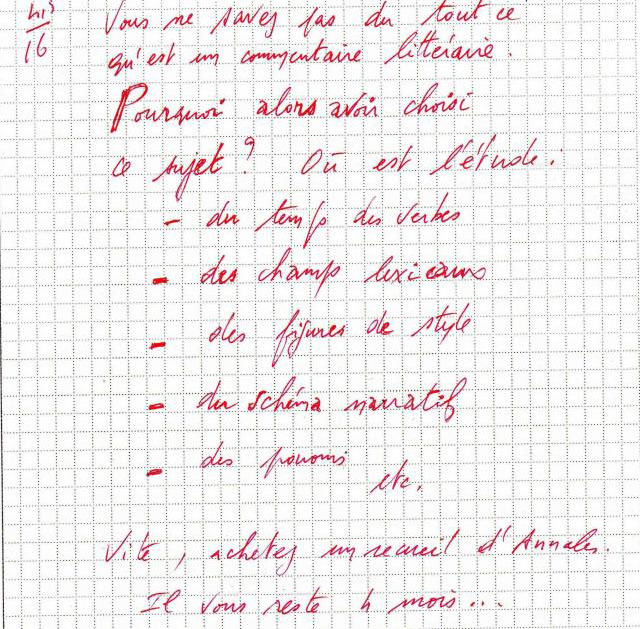 4,5
16
Vous ne savez pas du tout ce
qu'est un commentaire littéraire.
Pourquoi alors avoir choisi
ce sujet ? Où est l'étude :
- du temps des verbes
- des champs lexicaux
- des figures de style
- du schéma narratif
- des pronoms
etc.
Vite, achetez un recueil d'Annales.
Il vous reste 4 mois...